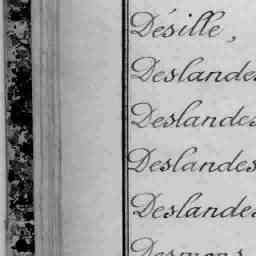 Désille,
Deslandes
Deslandes
Deslandes
Deslandes